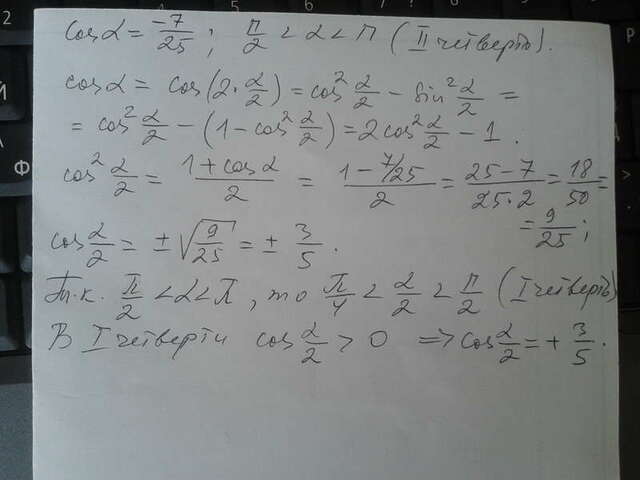 cos α = -7/25; π/2 < α < π (II четверть).
cos α = cos(2·α/2) = cos² α/2 - sin² α/2 =
= cos² α/2 - (1 - cos² α/2) = 2cos² α/2 - 1.
cos² α/2 = (1 + cos α)/2 = (1 - 7/25)/2 = (25 - 7)/(25·2) = 18/50 =
= 9/25;
cos α/2 = ±√(9/25) = ± 3/5.
Т.к. π/2 < α < π, то π/4 < α/2 < π/2 (I четверть)
В I четверти cos α/2 > 0 => cos α/2 = + 3/5.